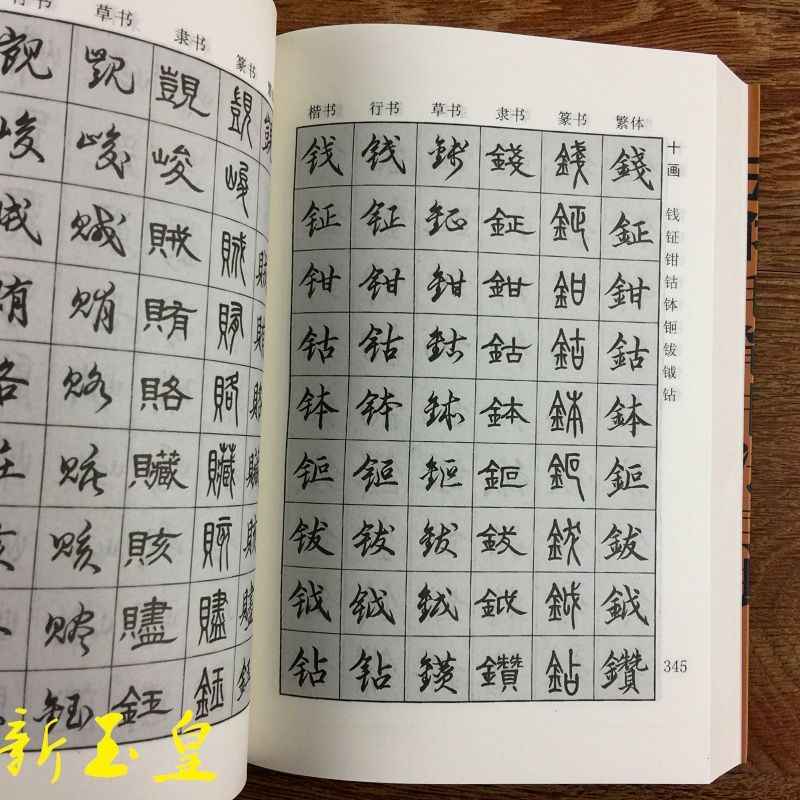 行书 草书 隶书 篆书
觊 觊 覬 覬 覬
峻 峻 峻 峻
贼 贼 賊 賊 賊
贿 贿 賄 賄
赂 赂 賂 賂 賂
赃 赃 贓 贓 贓
赅 赅 賅 賅 賅
赆 贐 贐 贐
钰 鈺 鈺
楷书 行书 草书 隶书 篆书 繁体
钱 钱 錢 錢 錢 錢
钲 钲 鉦 鉦 鉦 鉦
钳 钳 鉗 鉗 鉗 鉗
钴 钴 鈷 鈷 鈷 鈷
钵 钵 鉢 鉢 鉢 鉢
钷 钷 鉕 鉕 鉕 鉕
钹 钹 鈸 鈸 鈸 鈸
钺 钺 鉞 鉞 鉞 鉞
钻 钻 鑽 鑽 鉆 鑽
十画
钱钲钳钴钵钷钹钺钻
345
新玉皇